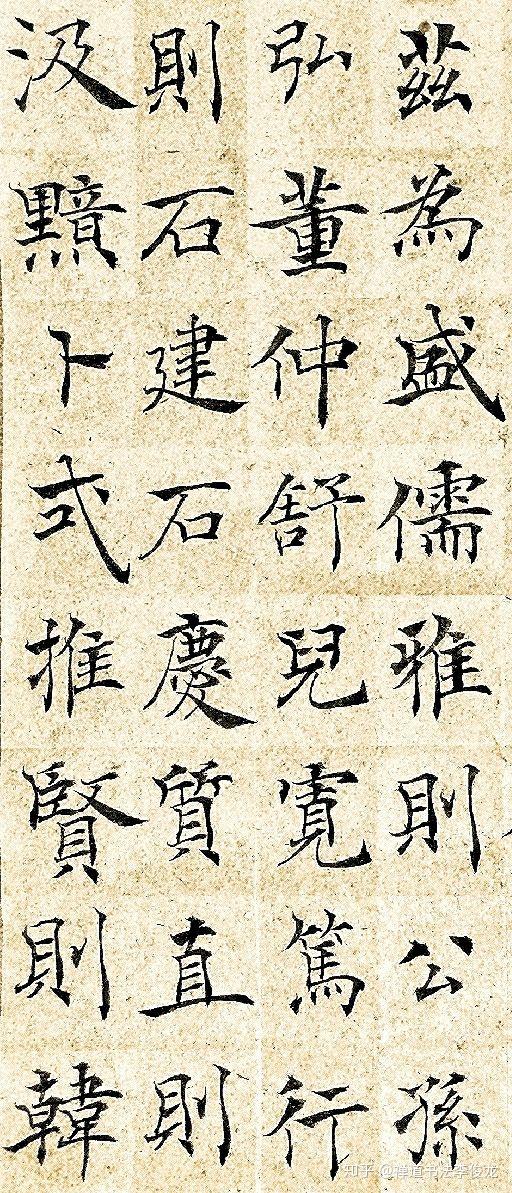 茲為盛儒雅則公孫
弘董仲舒兒寬篤行
則石建石慶質直則
汲黯卜式推賢則韓
知乎 @禅道书法李俊龙